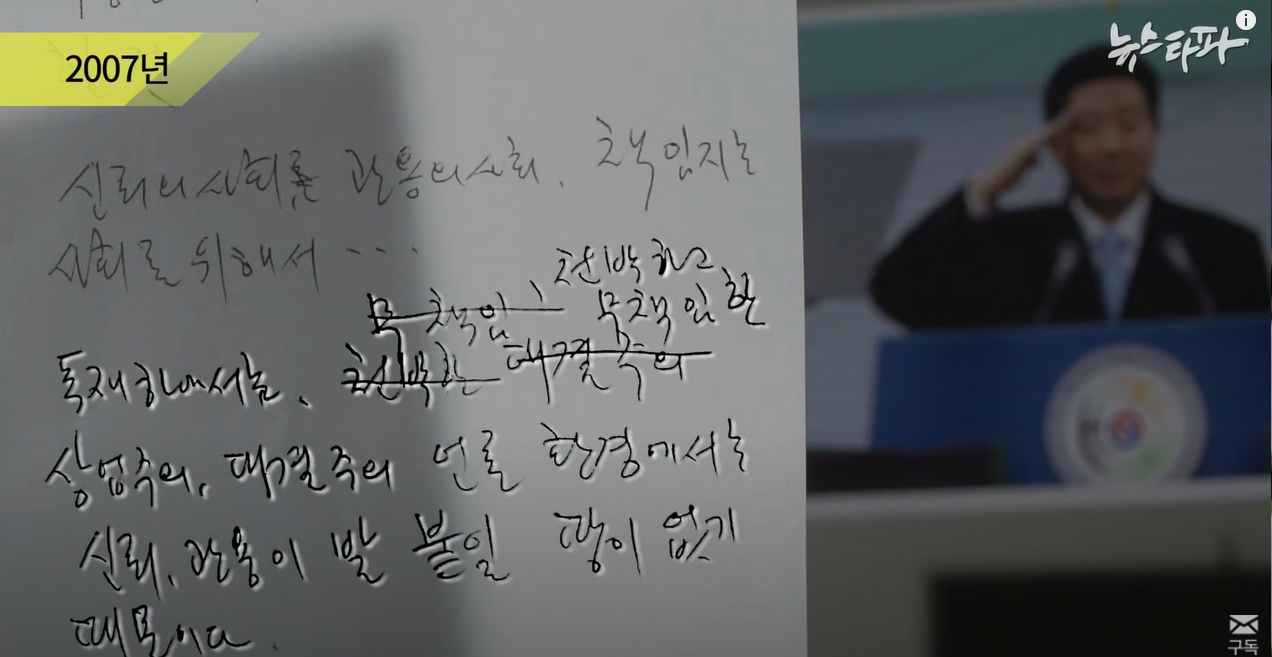 2007년
뉴스타파
신뢰의 사회를 관용의 사회, 책임지는
사회를 위해서 ...
천박하고
무책임, 무책임한
독재하에서는, 천박한 대결주의
상업주의, 대결주의 언론 환경에서는
신뢰, 관용이 발 붙일 땅이 없기
때문이다.
구독